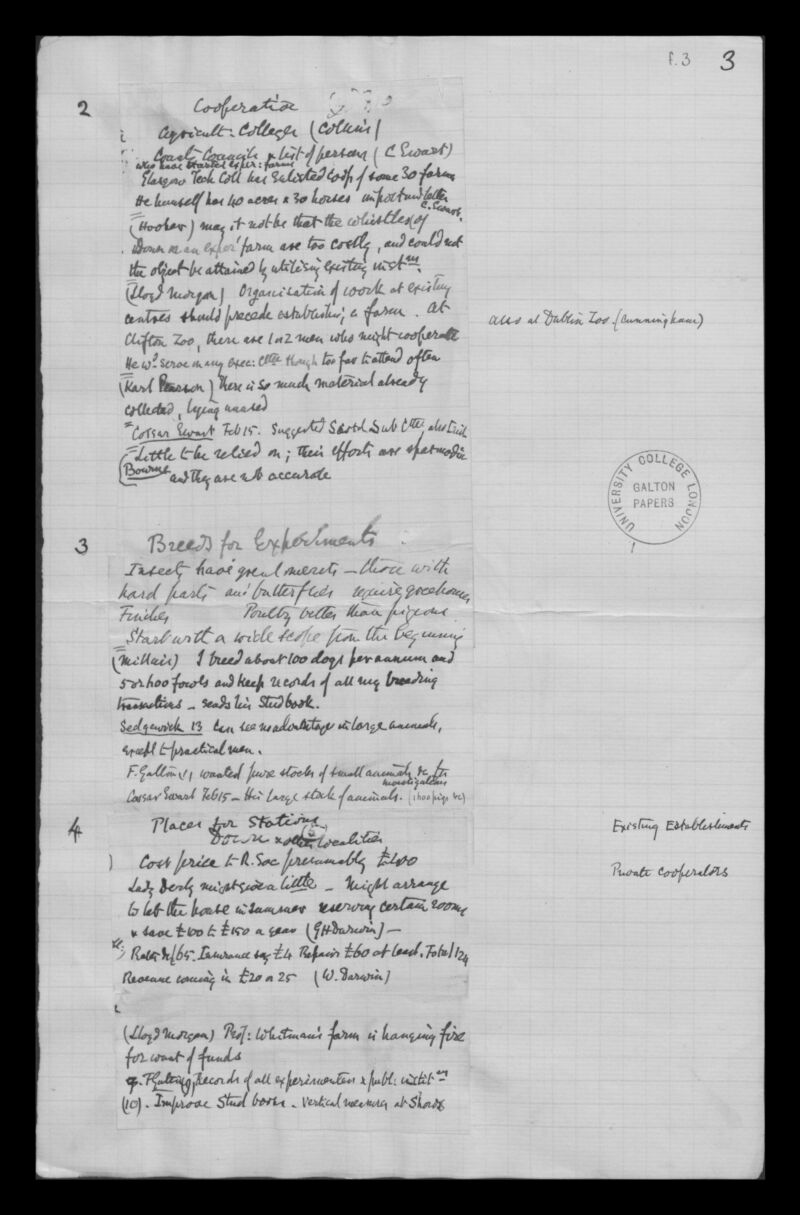 f.3 3
2 Cooperation
Agricult: Colleges (Collins)
County Councils & list of persons (C Ewart)
who have started exper: farms
Glasgow Tech Coll has enlisted coop of some 30 farms
He himself has 40 acres & 30 horses important letter
C. Ewart.
(Hooker) may it not be that the whistles of
Down or an exper' farm are too costly, and could not
the object be attained by utilising existing instns.
(Lloyd Morgan) Organisation of work at existing
centres should precede establishing a farm. At
Clifton Zoo, there are 1 or 2 men who might cooperate
He wd serve on any exec: Cttee though too far to attend often
also at Dublin Zoo. (Cunningham)
(Karl Pearson) there is so much material already
collected, lying unused
Cossar Ewart Feb 15. Suggested Scotch Sub Cttee, also Irish
Little to be relied on; their efforts are spasmodic
(Bourne and they are not accurate
UNIVERSITY COLLEGE LONDON
GALTON PAPERS
3 Breeds for Experiments
Insects have great merits – those with
hard parts and butterflies require greenhouses
Finches Poultry better than pigeons
Start with a wide scope from the beginning
(Millais) I breed about 100 dogs per annum and
5 or 600 fowls and keep records of all my breeding
transactions – sends his Stud book.
Sedgewick 13 Can see no advantage in large animals,
except to practical men.
F. Galton wanted pure stocks of small animals &c for
investigations
Cossar Ewart Feb 15 – His large stock of animals.
4 Places for Stations
Down & other localities
Existing Establishments
Cost price to R. Soc presumably
Private cooperators
Lady Derby might give a little – Might arrange
to let the house in summer reserving certain rooms
& save £100 to £150 a year (G H Darwin) –
Rates &c £65. Insurance say £4 Repairs £60 at least. Total 124
Revenue coming in £20 or 25 (W. Darwin)
(Lloyd Morgan) Prof: Whitman's farm is hanging fire
for want of funds
F Galton, Records of all experimenters & publ: institns
(10). Improve Stud books. Vertical measures at Shows